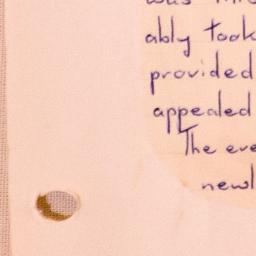 ably took
provided
appealed
The eve
newl